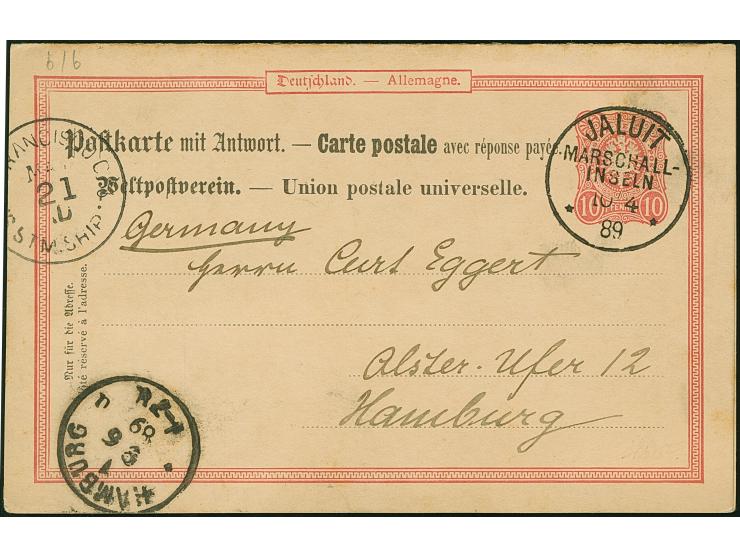 6/6
Deutschland. — Allemagne.
Postkarte mit Antwort. — Carte postale avec réponse payée.
Weltpostverein. — Union postale universelle.
JALUIT
MARSCHALL-
INSELN
10 4
89
10 10
RANCISCO
21
STM. SHIP.
Germany
Herrn Curt Eggert
Alster-Ufer 12
Hamburg
Nur für die Adresse.
té réservé à l'adresse.
HAMBURG
89